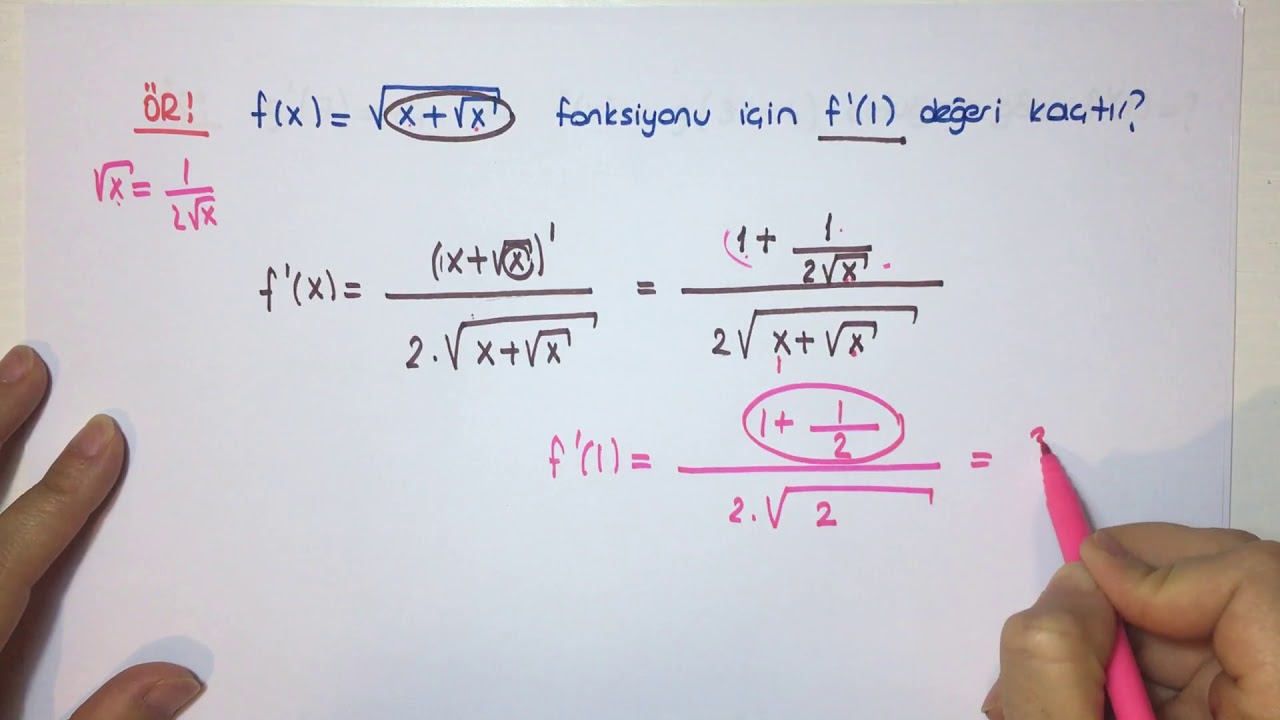 ÖR! f(x) = √(x+√x) fonksiyonu için f'(1) değeri kaçtır?
√x = 1/(2√x)
f'(x) = (x+√x)' / (2.√(x+√x)) = (1 + 1/(2√x)) / (2√(x+√x))
1
f'(1) = (1 + 1/2) / (2.√2) =